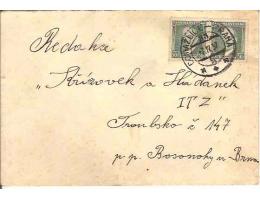 Redakce
"Křížovek a Hádanek
ITZ"
Troubsko č 147
p. p. Bosonohy u Brna